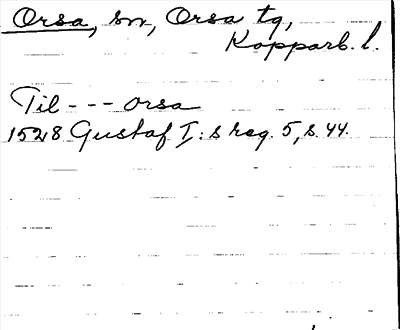 Orsa, sn, Orsa tg,
Kopparb. l.
Til --- orsa
1528 Gustaf I:s reg. 5, s. 44.